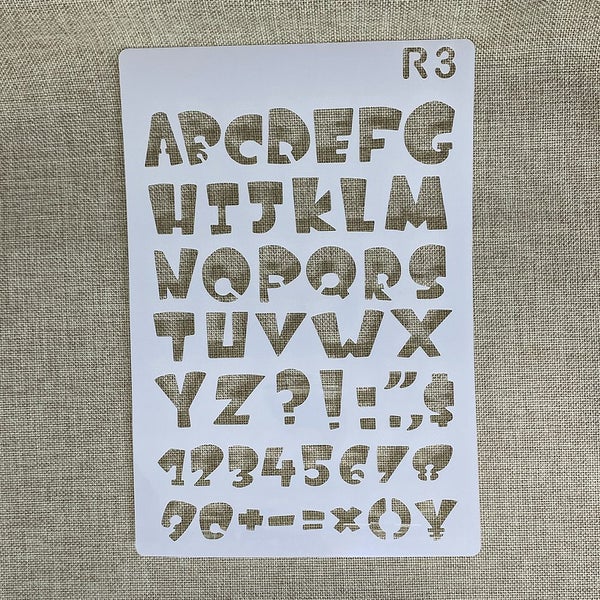 R3
ABCDEFG
HIJKLM
NOPQRS
TUVWX
YZ?!:;",$
12345678
90+-=×()¥